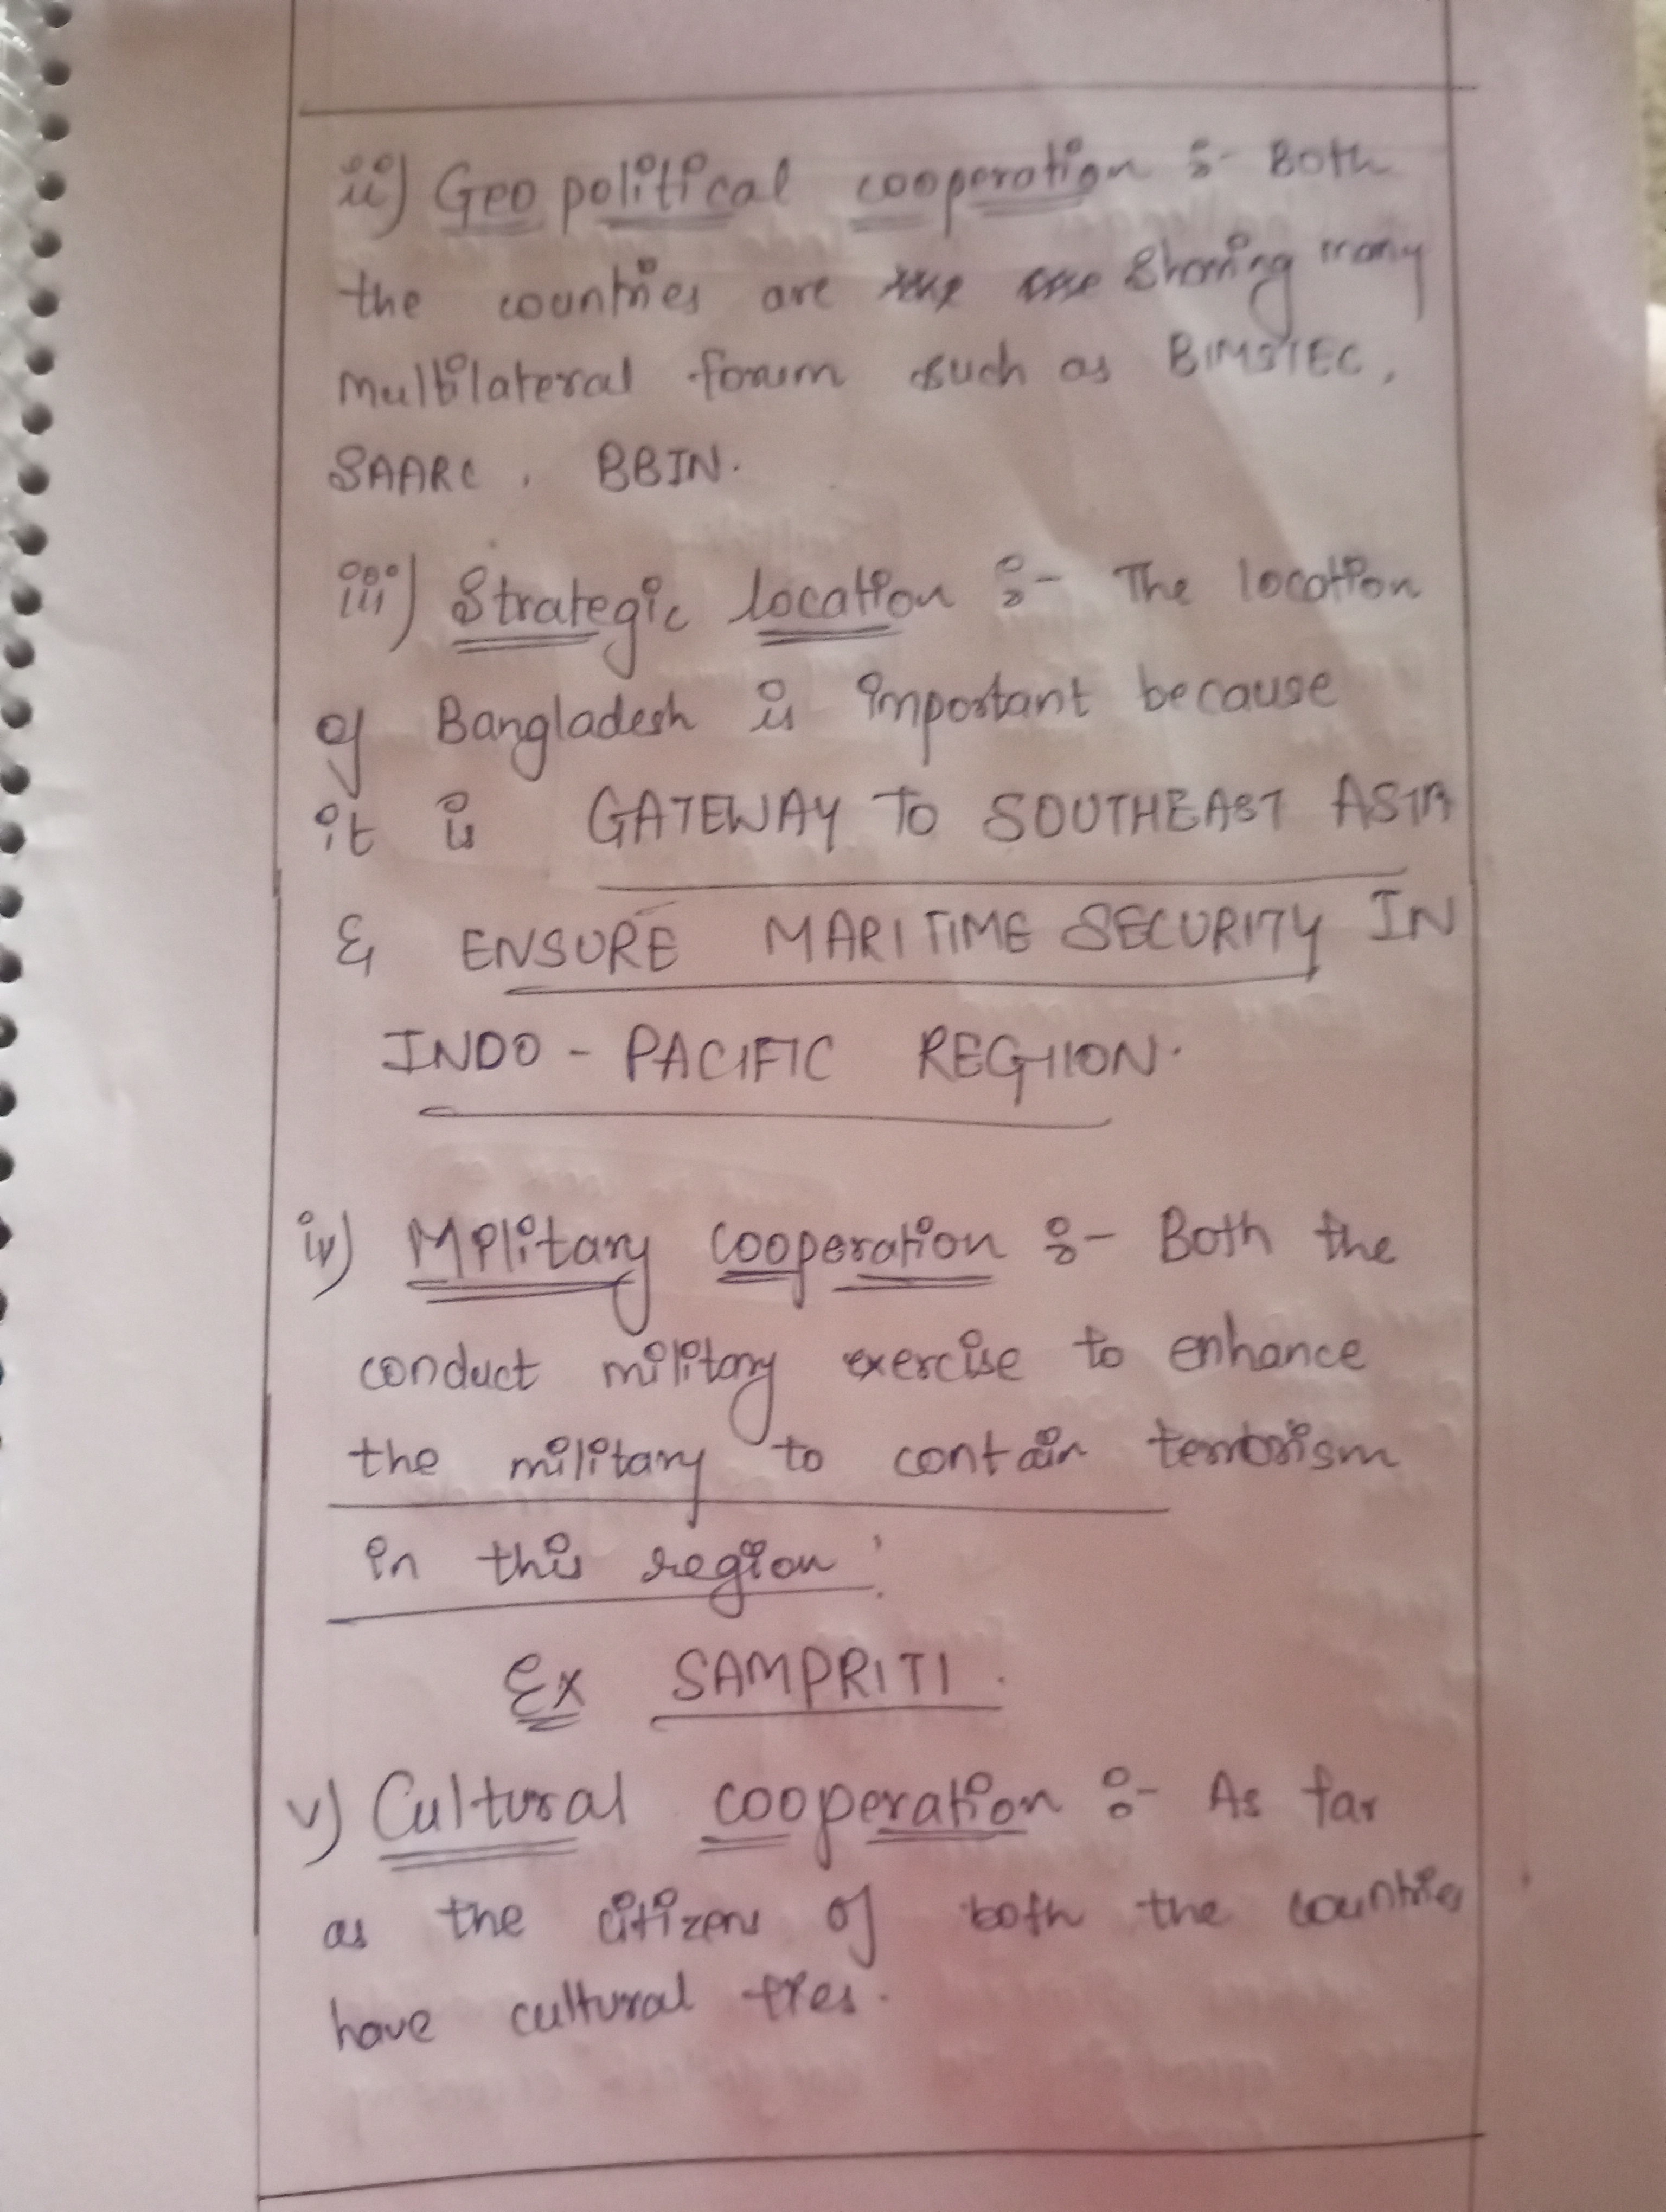 ii) Geo political cooperation :- Both
the countries are sharing many
multilateral forum such as BIMSTEC,
SAARC, BBIN.
iii) Strategic location :- The location
of Bangladesh is important because
it is GATEWAY TO SOUTHEAST ASIA
& ENSURE MARITIME SECURITY IN
INDO - PACIFIC REGION.
iv) Military cooperation :- Both the
conduct military exercise to enhance
the military to contain terrorism
in this region.
Ex SAMPRITI.
v) Cultural cooperation :- As far
as the citizens of both the countries
have cultural ties.